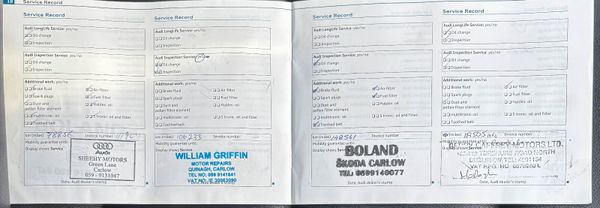 Service Record
Service Record
Audi LongLife Service: yes/no
Oil change
Inspection
Audi Inspection Service: yes/no
Oil change
Inspection
Additional work: yes/no
Brake fluid
Air filter
Spark plugs
Fuel filter
Dust and
pollen filter element
Haldex: oil
multitronic: oil
S tronic: oil and filter
Toothed belt
km (miles)
78856
Invoice number
Mobility guarantee until:
Display shows Service
Audi
SHEEHY MOTORS
Green Lane
Carlow
059 - 9131047
Date, Audi dealer's stamp
Service Record
Audi LongLife Service: yes/no
Oil change
Inspection
Audi Inspection Service: yes/no
Oil change
Inspection
Additional work: yes/no
Brake fluid
Air filter
Spark plugs
Fuel filter
Dust and
pollen filter element
Haldex: oil
multitronic: oil
S tronic: oil and filter
Toothed belt
km (miles)
106233
Invoice number
Mobility guarantee until:
Display shows Service
WILLIAM GRIFFIN
MOTOR REPAIRS
QUINAGH, CARLOW
TEL NO: 059 9141841
Date, Audi dealer's stamp
Service Record
Service Record
Audi LongLife Service: yes/no
Oil change
Inspection
Audi Inspection Service: yes/no
Oil change
Inspection
Additional work: yes/no
Brake fluid
Air filter
Spark plugs
Fuel filter
Dust and
pollen filter element
Haldex: oil
multitronic: oil
S tronic: oil and filter
Toothed belt
km (miles)
148561
Invoice number
Mobility guarantee until:
Display shows Service
BOLAND
ŠKODA CARLOW
TEL: 0599140077
Date, Audi dealer's stamp
Service Record
Audi LongLife Service: yes/no
Oil change
Inspection
Audi Inspection Service: yes/no
Oil change
Inspection
Additional work: yes/no
Brake fluid
Air filter
Spark plugs
Fuel filter
Dust and
pollen filter element
Haldex: oil
multitronic: oil
S tronic: oil and filter
Toothed belt
km (miles)
Invoice number
Mobility guarantee until:
Display shows Service
MOTORS LTD.
ROAD NORTH
Date, Audi dealer's stamp